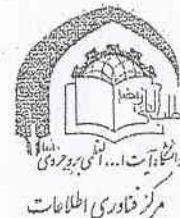 دانشگاه آیت ا... العظمی بروجردی
مرکز فناوری اطلاعات